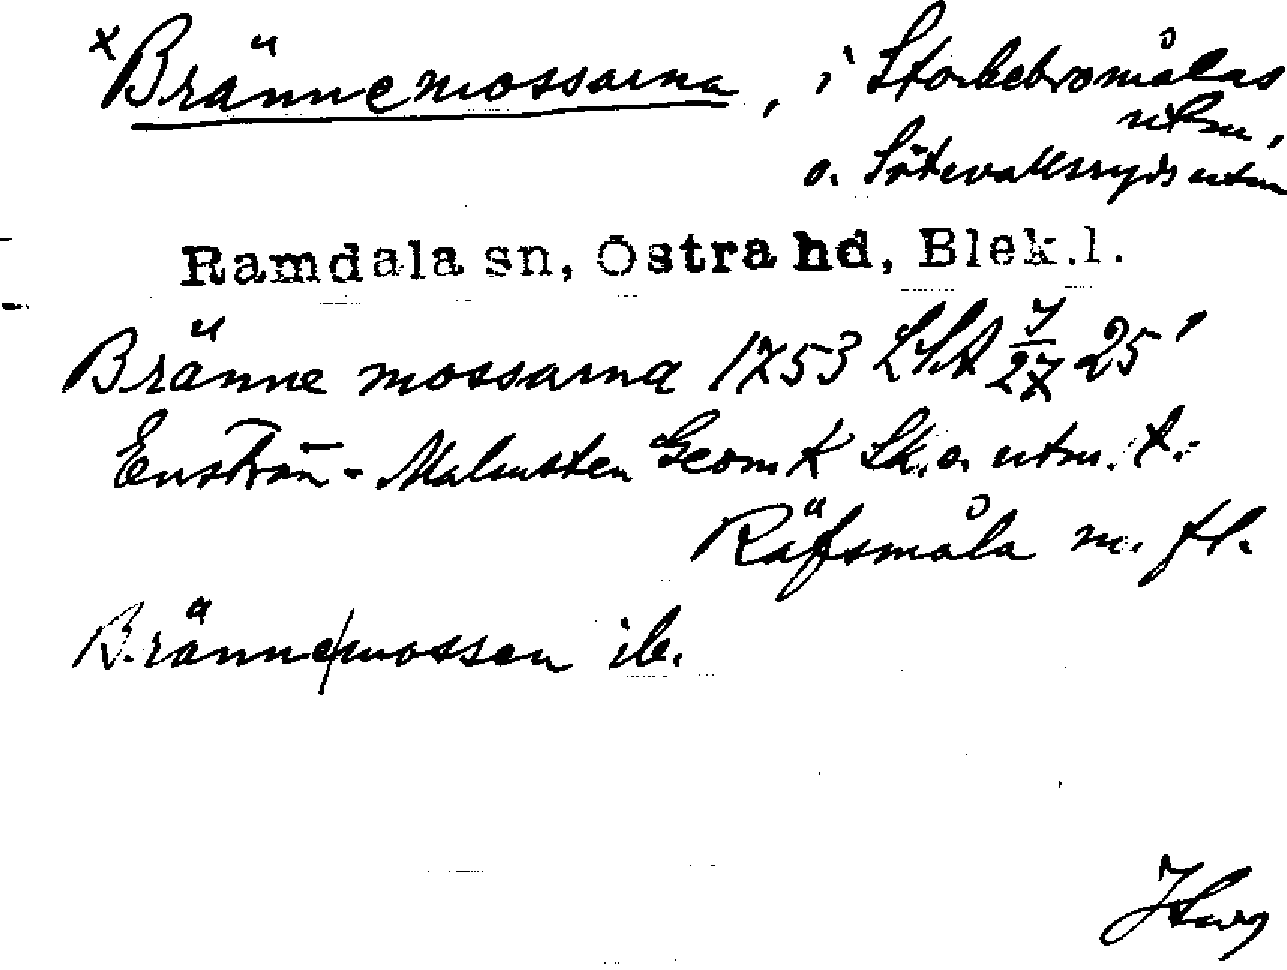 x Brännemossarna, i Storbebromålas
utm,
o. Sötevallsryds utm
Ramdala sn, Östra hd, Blek.l.
Bränne mossarna 1753 LSA 7/27 25'
Malmsten Geom K Sk. o. utm. t.
Räfsmåla m. fl.
Bränne/mossen ib.